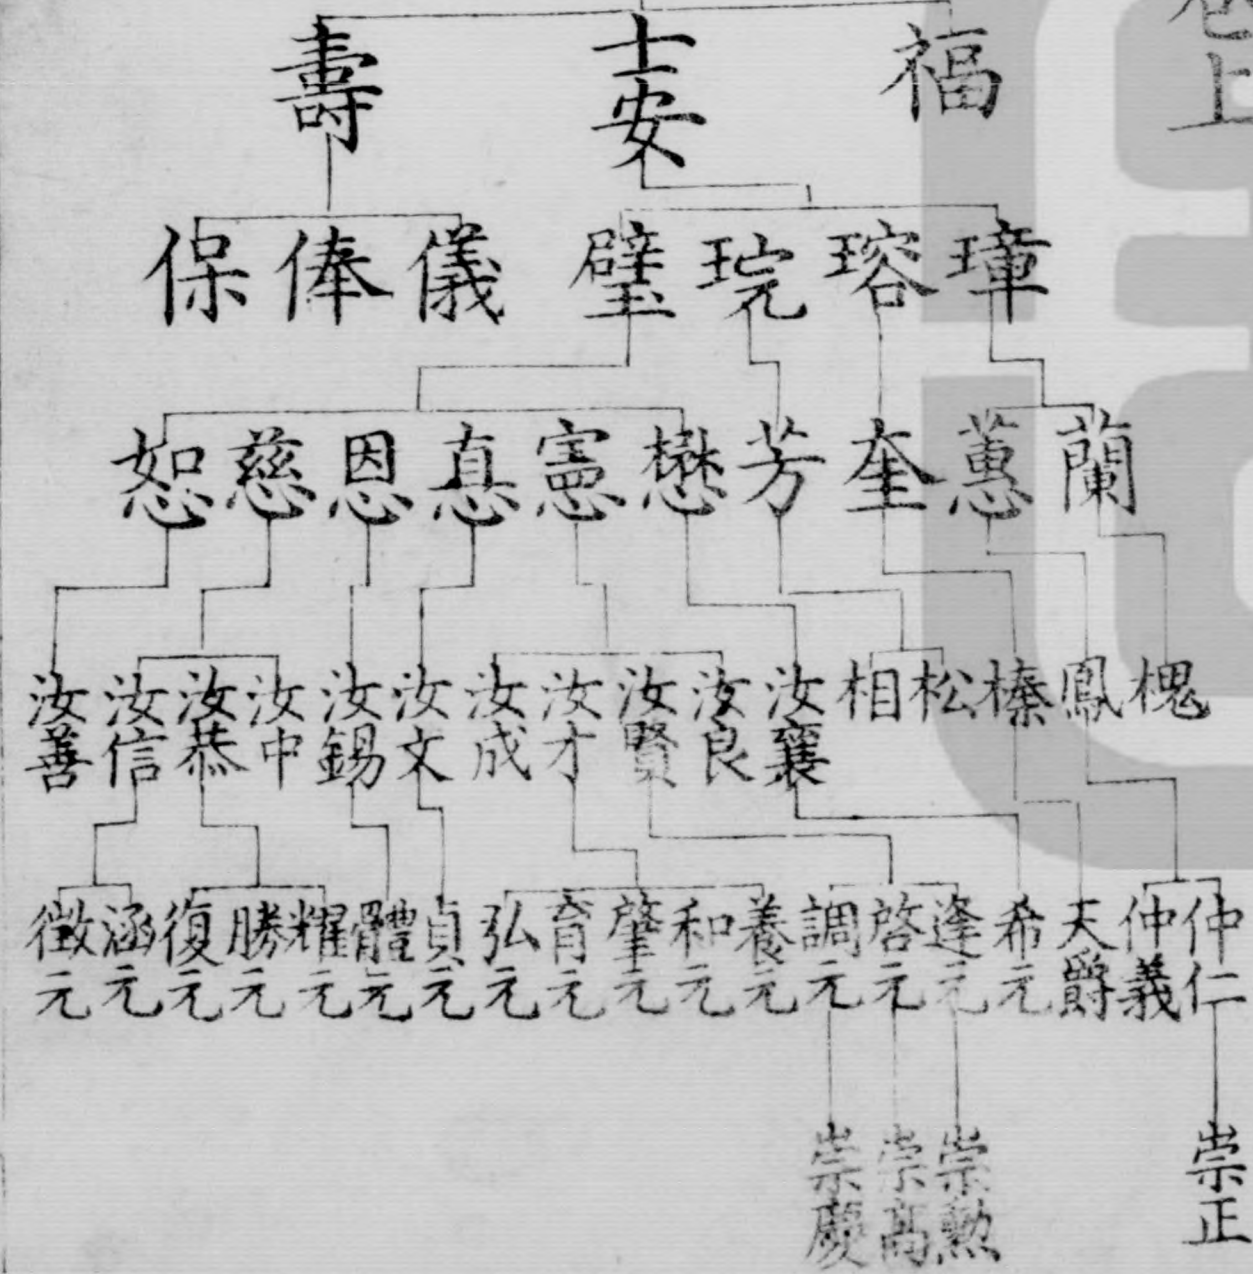 卷上
福 士安 壽
璋 瑢 琓 璧 儀 俸 保
蘭 蕙 奎 芳 懋 憲 恴 恩 慈 恕
槐 鳳 榛 松 相 汝襄 汝良 汝賢 汝才 汝成 汝文 汝錫 汝中 汝恭 汝信 汝善
仲仁 仲義 天爵 希元 逢元 啓元 調元 養元 和元 肇元 育元 弘元 貞元 體元 耀元 勝元 復元 涵元 徵元
崇正 崇勲 崇高 崇慶